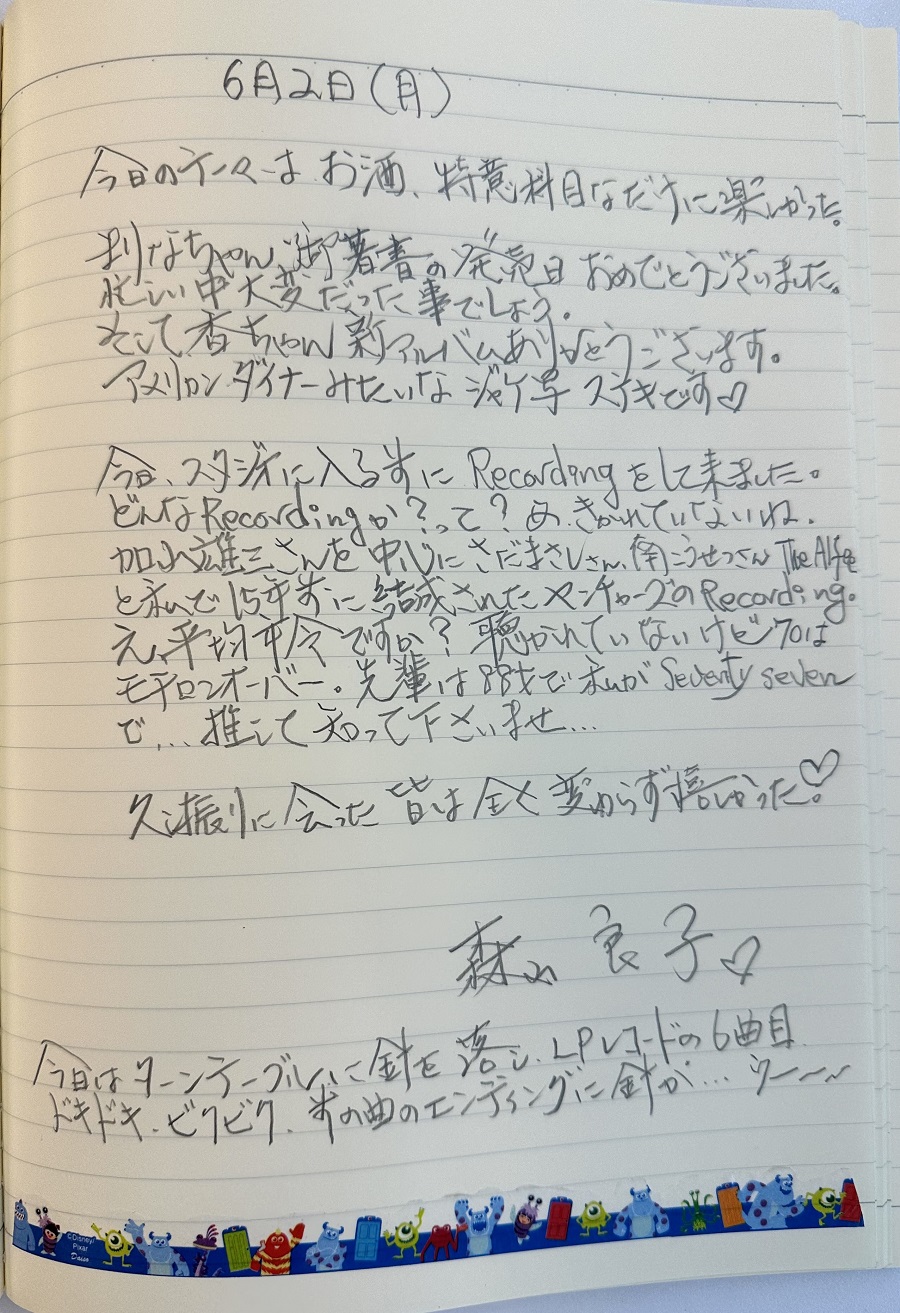 6月2日(月)
今日のテーマは お酒、特意科目なだけに楽しかった。
まりなちゃん、御著書の発売日 おめでとうございました。
忙しい中 大変だった事でしょう。
そして、香ちゃん 新アルバムありがとうございます。
アメリカン・ダイナーみたいな ジャケ写 ステキです♡
今日、スタジオに入る前に Recordingをして来ました。
どんなRecordingか?って? あ、きかれていないね。
加山雄三さんを 中心に さだまさしさん、南こうせつさん The Alfee
と私で 15年前に 結成された ヤンチャーズのRecording。
え、平均年令ですか? 聴かれていないけど 70は
モチロンオーバー。先輩は88才で 私が Seventy seven
で... 推して 知って下さいませ...
久し振りに 会った 皆は 全く 変わらず 嬉しかった♡
森山 良子♡
今日は ターンテーブルに 針を 落し、LPレコードの 6曲目
ドキドキ、ビクビク、前の曲のエンディングに 針が... ウ〜〜〜
©Disney/
Pixar